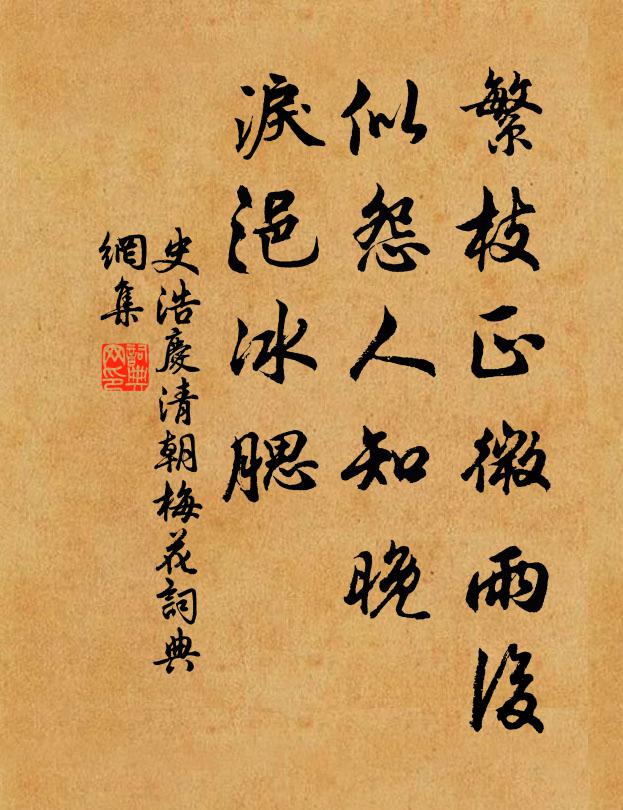 繁枝正微雨後
似怨人知晚
淚浥冰腮
史浩慶清朝梅花詞典
網集
詞典網印